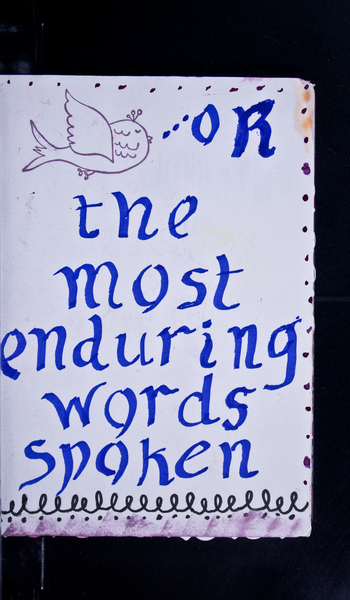 ...OR
the
most
enduring
words
spoken